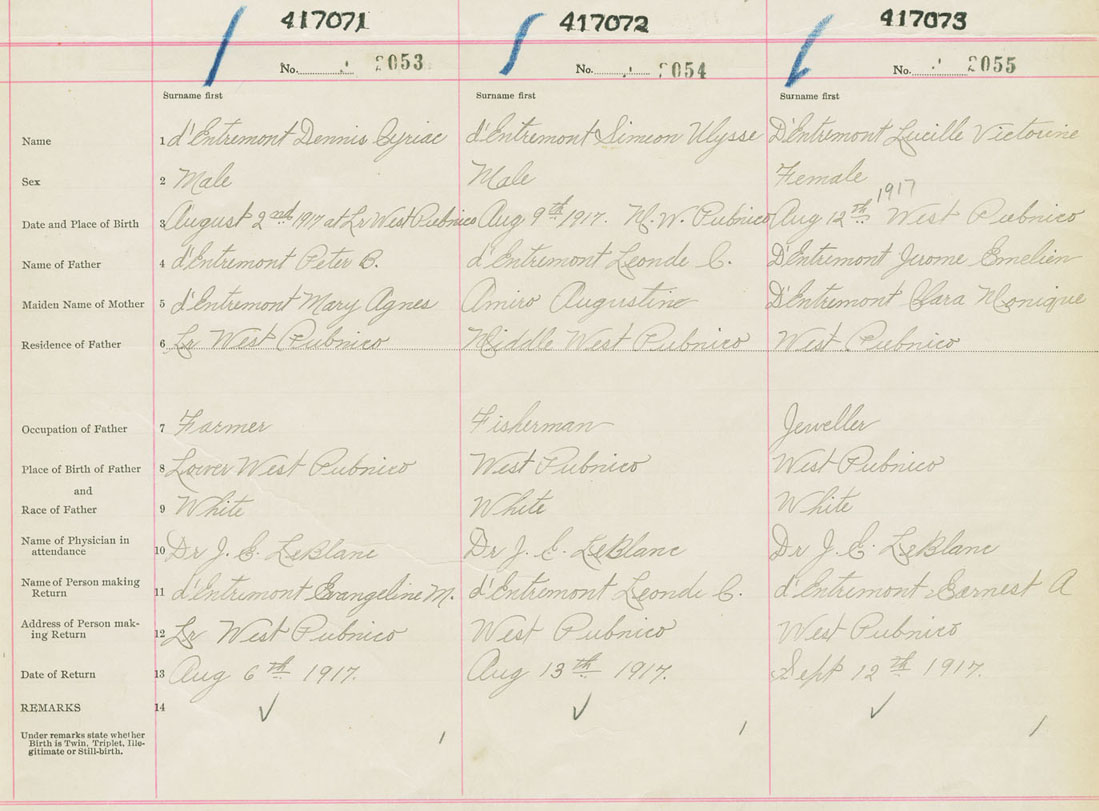 417071 417072 417073
No. 2053 No. 2054 No. 2055
Surname first Surname first Surname first
Name 1 d'Entremont Dennis Cyriac d'Entremont Simeon Ulysse D'Entremont Lucille Victorine
Sex 2 Male Male Female
1917
Date and Place of Birth 3 August 2nd 1917 at Lr West Pubnico Aug 9th 1917. M. W. Pubnico Aug 12th West Pubnico
Name of Father 4 d'Entremont Peter B. d'Entremont Leonde C. D'Entremont Jerome Emelien
Maiden Name of Mother 5 d'Entremont Mary Agnes Amiro Augustine D'Entremont Clara Monique
Residence of Father 6 Lr West Pubnico Middle West Pubnico West Pubnico
Occupation of Father 7 Farmer Fisherman Jeweller
Place of Birth of Father 8 Lower West Pubnico West Pubnico West Pubnico
and
Race of Father 9 White White White
Name of Physician in
attendance 10 Dr J. E. LeBlanc Dr J. E. LeBlanc Dr J. E. LeBlanc
Name of Person making
Return 11 d'Entremont Evangeline M. d'Entremont Leonde C. d'Entremont Earnest A
Address of Person mak-
ing Return 12 Lr West Pubnico West Pubnico West Pubnico
Date of Return 13 Aug 6th 1917. Aug 13th 1917. Sept 12th 1917.
REMARKS 14
Under remarks state whether
Birth is Twin, Triplet, Ille-
gitimate or Still-birth.
1 1 1